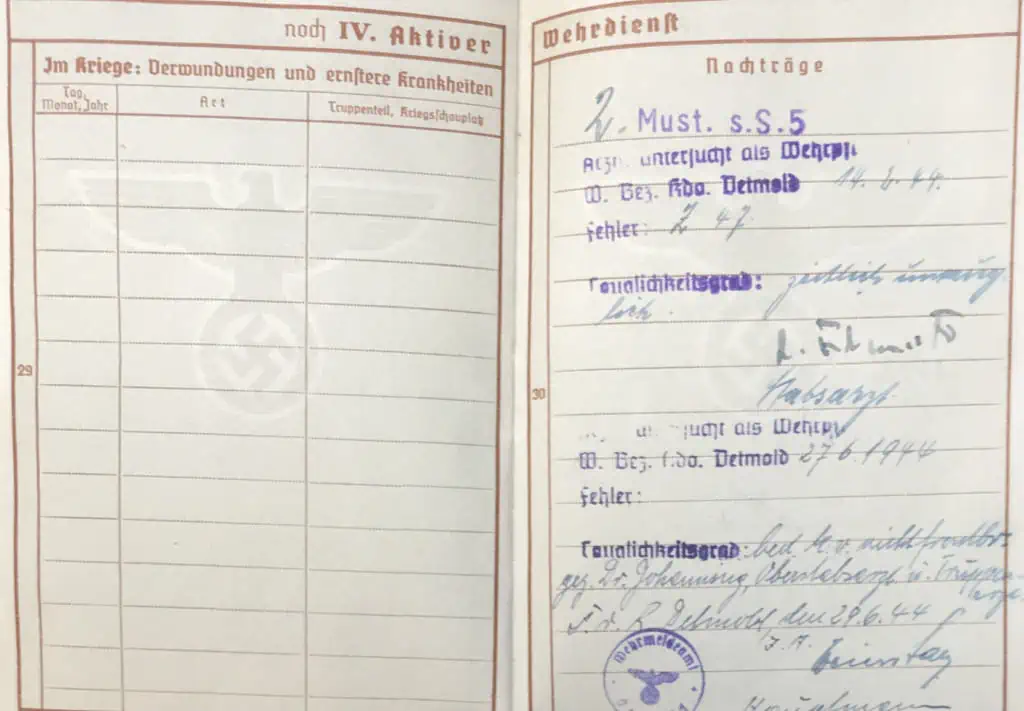 noch IV. Aktiver
Im Kriege: Verwundungen und ernstere Krankheiten
Tag, Monat, Jahr
Art
Truppenteil, Kriegsschauplatz
29
Wehrdienst
Nachträge
2. Must. s.S.5
untersucht als Wehrpfl
W. Bez. Kdo. Detmold 14. 44.
Fehler: Z 47
Tauglichkeitsgrad: zeitlich untaug
lich.
Stabsarzt
30
sucht als Wehrpfl
W. Bez. Kdo. Detmold 27 6. 1944
Fehler:
Tauglichkeitsgrad: bed k.v. nicht
gez. Dr. Johanning, Oberstabsarzt u. Truppen
F. d. R Detmold, den 29.6.44
I. A.
Wehrmeldeamt
Hauptmann